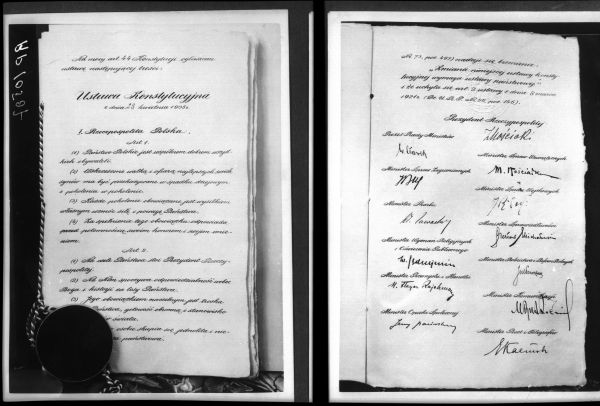 Na mocy art. 44 Konstytucji ogłaszam
ustawę następującej treści:
Ustawa Konstytucyjna
z dnia 23 kwietnia 1935 r.
I. Rzeczpospolita Polska.
Art. 1.
(1) Państwo Polskie jest wspólnem dobrem wszyst-
kich obywateli.
(2) Wskrzeszone walką i ofiarą najlepszych swoich
synów ma być przekazywane w spadku dziejowym
z pokolenia w pokolenie.
(3) Każde pokolenie obowiązane jest wysiłkiem
własnym wzmóc siłę i powagę Państwa.
(4) Za spełnienie tego obowiązku odpowiada
przed potomnością swoim honorem i swojem imie-
niem.
Art. 2.
(1) Na czele Państwa stoi Prezydent Rzeczy-
pospolitej.
(2) Na Nim spoczywa odpowiedzialność wobec
Boga i historji za losy Państwa.
(3) Jego obowiązkiem naczelnym jest troska
Państwa, gotowość obronną i stanowisko
świata.
osobie skupia się jednolita i nie-
państwowa.
Nr. 73, poz. 497) nadaje się brzmienie:
"Zmiana niniejszej ustawy konsty-
tucyjnej wymaga ustawy państwowej"
i że uchyla się art. 2 ustawy z dnia
Prezydent Rzeczypospolitej
I Mościcki
Prezes Rady Ministrów
W Sławek
Minister Spraw Wewnętrznych
M. Kościałk
Minister Spraw Zagranicznych
Minister Spraw Wojskowych
Minister Skarbu
Minister Sprawiedliwości
Minister Wyznań Religijnych
i Oświecenia Publicznego
W. Jędrzejewicz
Minister Rolnictwa i Reform Rolnych
Minister Przemysłu i Handlu
H. Floyar Rajchman
Minister Komunikacji
Minister Opieki Społecznej
Minister Poczt i Telegrafów
E Kaliński